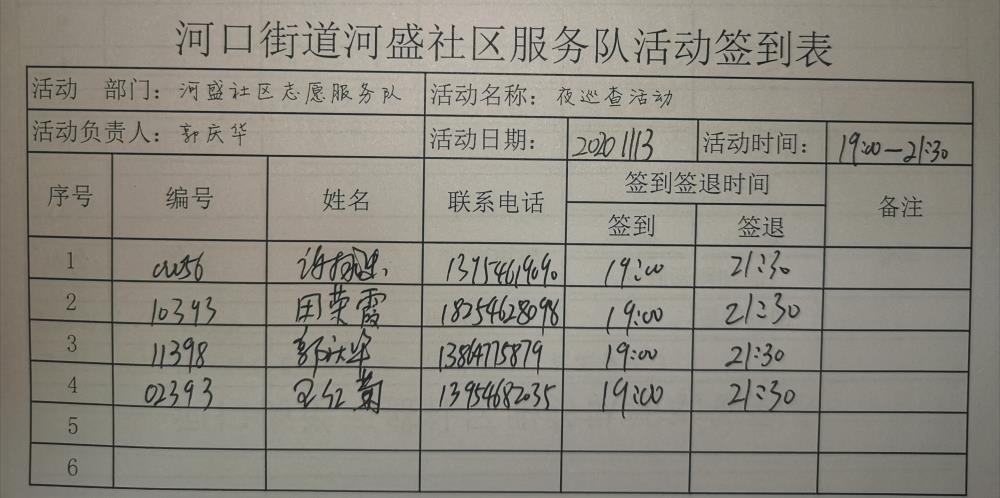 河口街道河盛社区服务队活动签到表
活动 部门：河盛社区志愿服务队 活动名称：夜巡查活动
活动负责人：郭庆华 活动日期：20201113 活动时间：19:00—21:30
序号 编号 姓名 联系电话 签到签退时间 备注
签到 签退
1 19:00 21:30
2 10393 田荣霞 18254628098 19:00 21:30
3 11398 郭庆华 13864775879 19:00 21:30
4 02393 王红菊 13954682035 19:00 21:30
5
6